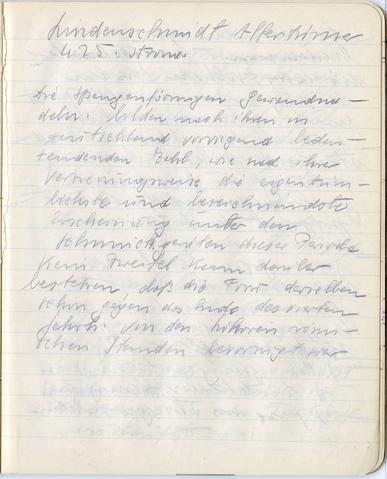 Lindenschmidt Altertümer
425.
Die Spangenförmigen Gewandna-
deln: bilden nach ihrer in
Deutschland vorwiegend bedeu-
tendenden Zahl, wie nach ihrer
Verzierungsweise die eigentüm-
lichste und bezeichnendste
Erscheinung unter den
Schmuckgeräten dieser Periode
Kein Zweifel kann darüber
bestehen daß die Form derselben
schon gegen das Ende des vierten
Jahrh. von den höheren römi-
schen Standen bevorzugt war